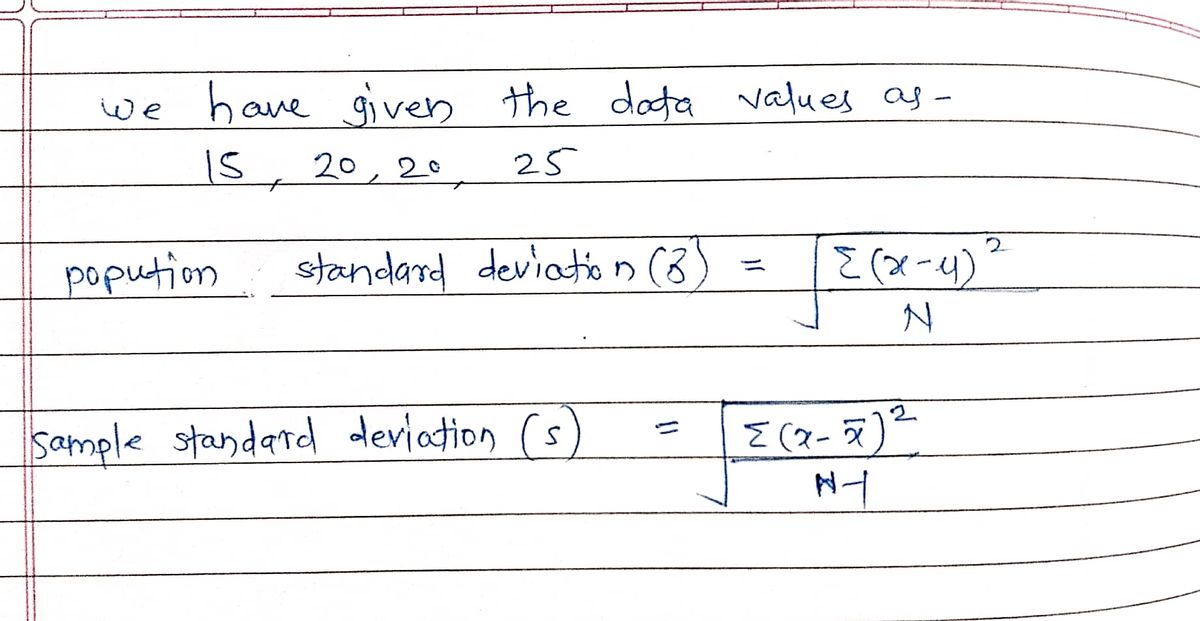 we have given the data values as -
15, 20, 20, 25
popution standard deviation (8) = √Σ(x-μ)²/N
sample standard deviation (s) = √Σ(x-x̄)²/N-1